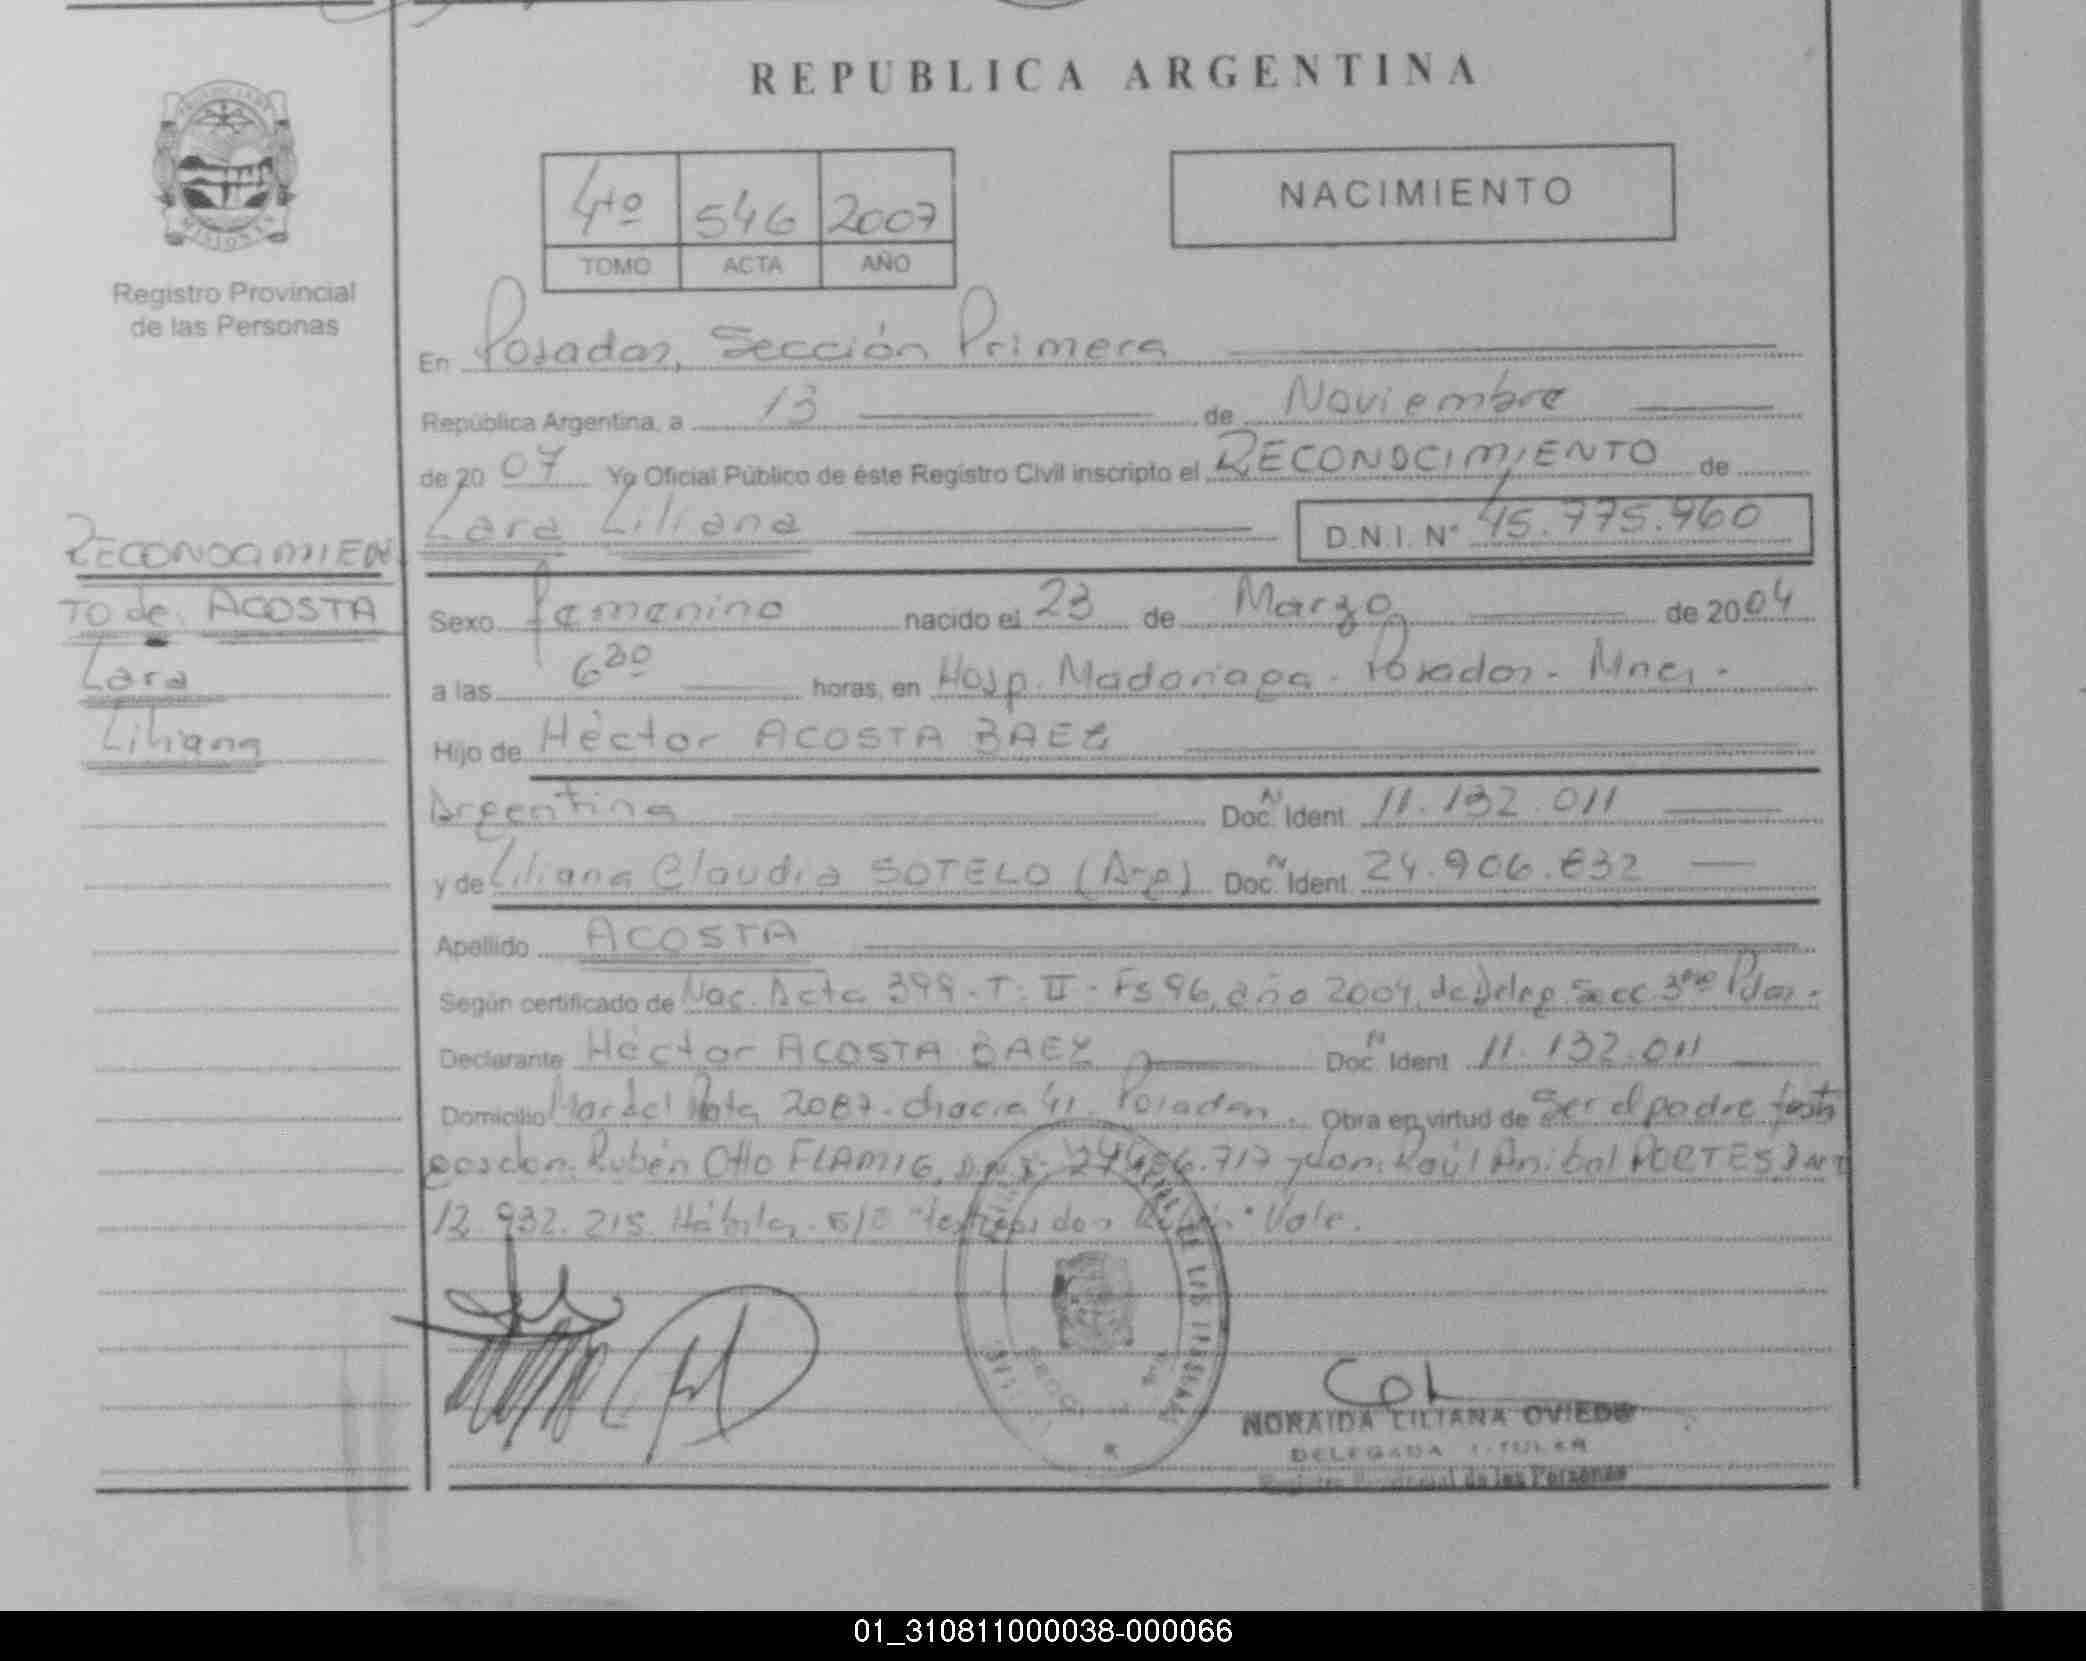 REPUBLICA ARGENTINA
PROVINCIA DE
MISIONES
Registro Provincial
de las Personas
4to 546 2007
TOMO ACTA AÑO
NACIMIENTO
En Posadas, Sección Primera
República Argentina, a 13 de Noviembre
de 20 07 Yo Oficial Público de éste Registro Civil inscripto el RECONOCIMIENTO de
Lara Liliana D.N.I. N° 45.775.960
RECONOCIMIEN
TO de. ACOSTA
Lara
Liliana
Sexo femenino nacido el 23 de Marzo de 20 04
a las 6 30 horas, en Hosp. Madariaga - Posadas - Mnes.
Hijo de Héctor ACOSTA BAEZ
Argentina Doc. N Ident 11.132.011
y de Liliana Claudia SOTELO (Arg) Doc. N Ident 24.906.832
Apellido ACOSTA
Según certificado de Nac. Acta 399 - T. II - Fs 96, año 2004, de Deleg. Secc. 3era Pdas.
Declarante Héctor ACOSTA BAEZ Doc. N Ident 11.132.011
Domicilio Mar del Plata 2087. chacra 41. Posadas. Obra en virtud de Ser el padre testi
gos don. Rubén Otto FLAMIG, D.N.I. .717 y don. Raúl Anibal PORTES DNI
12.932.215. Hábiles. S/E "testigos don Rubén" Vale.
NORAIDA LILIANA OVIEDO
DELEGADA TITULAR
Registro Provincial de las Personas
01_310811000038-000066